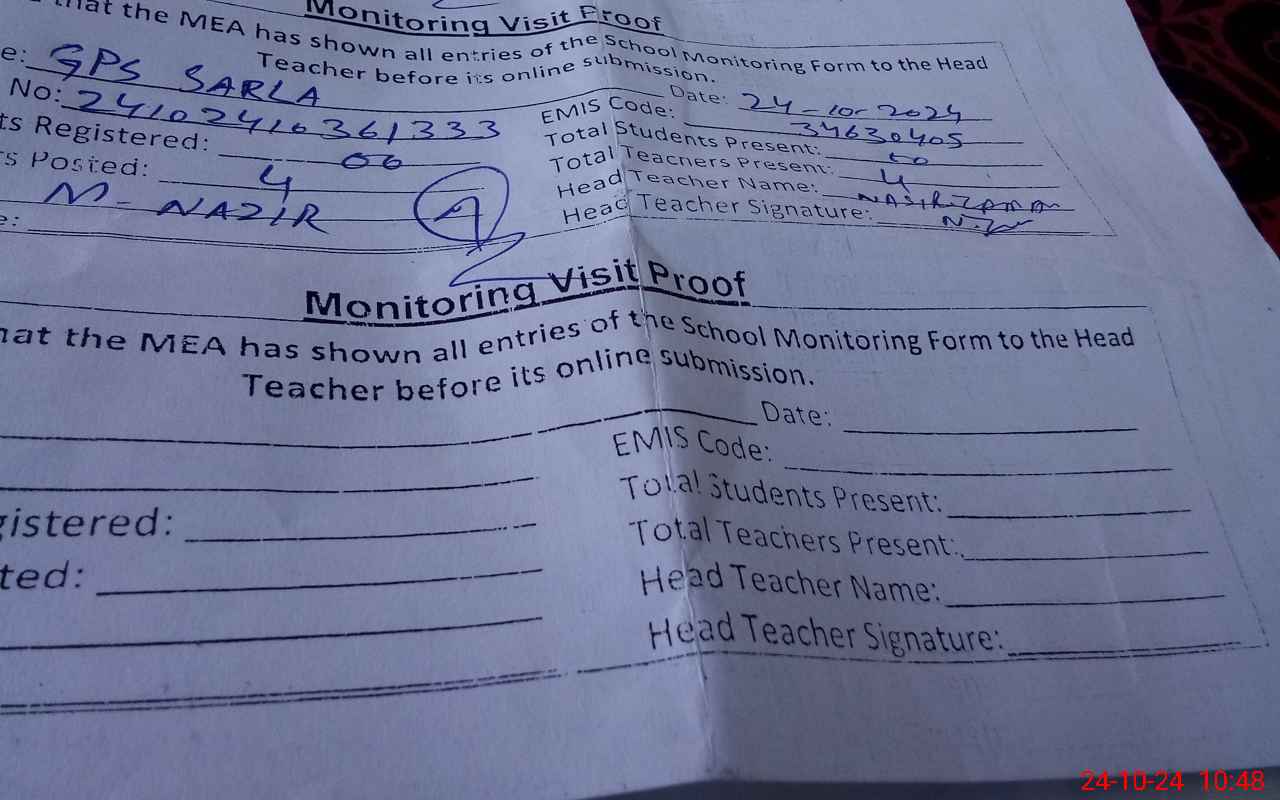 Monitoring Visit Proof
that the MEA has shown all entries of the School Monitoring Form to the Head
Teacher before its online submission.
e: GPS SARLA Date: 24-10-2024
No: 2410241036 1333 EMIS Code: 34630405
ts Registered: 06 Total Students Present:
rs Posted: 4 Total Teachers Present: 4
M-NAZIR Head Teacher Name: NASIR ZAMAN
e: Head Teacher Signature:
Monitoring Visit Proof
hat the MEA has shown all entries of the School Monitoring Form to the Head
Teacher before its online submission.
Date:
EMIS Code:
gistered: Total Students Present:
ted: Total Teachers Present:
Head Teacher Name:
Head Teacher Signature:
24-10-24 10:48